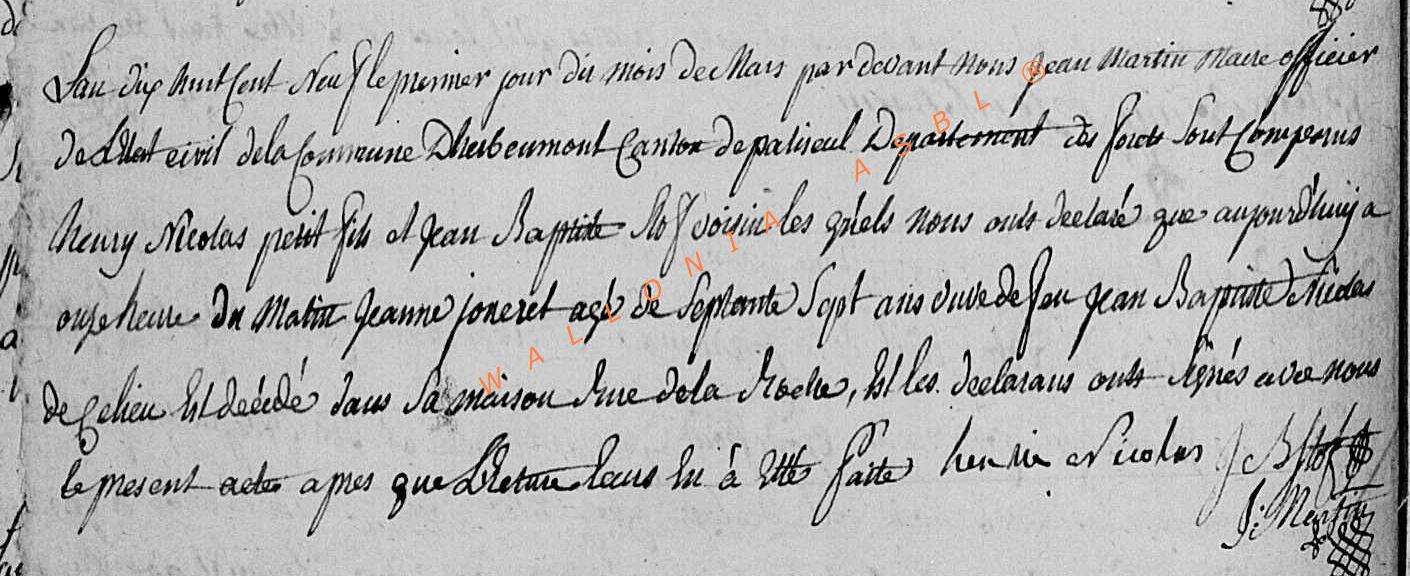 Lan dix huit Cent Neuf le premier jour du mois de Mars par devant nous Jean Martin Maire officier
de L'Etat civil dela Commune Dherbeumont Canton de paliseul Departement des forets Sont Comparus
henry Nicolas petit fils et Jean Baptiste Stof voisin les quels nous onts declaré que aujourd'huij a
onze heure du Matin Jeanne joneret agé de Septante Sept ans vuve de feu Jean Baptiste Nicolas
de Ce lieu Est décédé dans Sa maison Rue dela Roche, Est les declarans onts Signés avec nous
le present acte apres que Lecture leurs En à Etté faitte henrie Nicolas J B Stof
J: Martin
WALLONIA ASBL ®